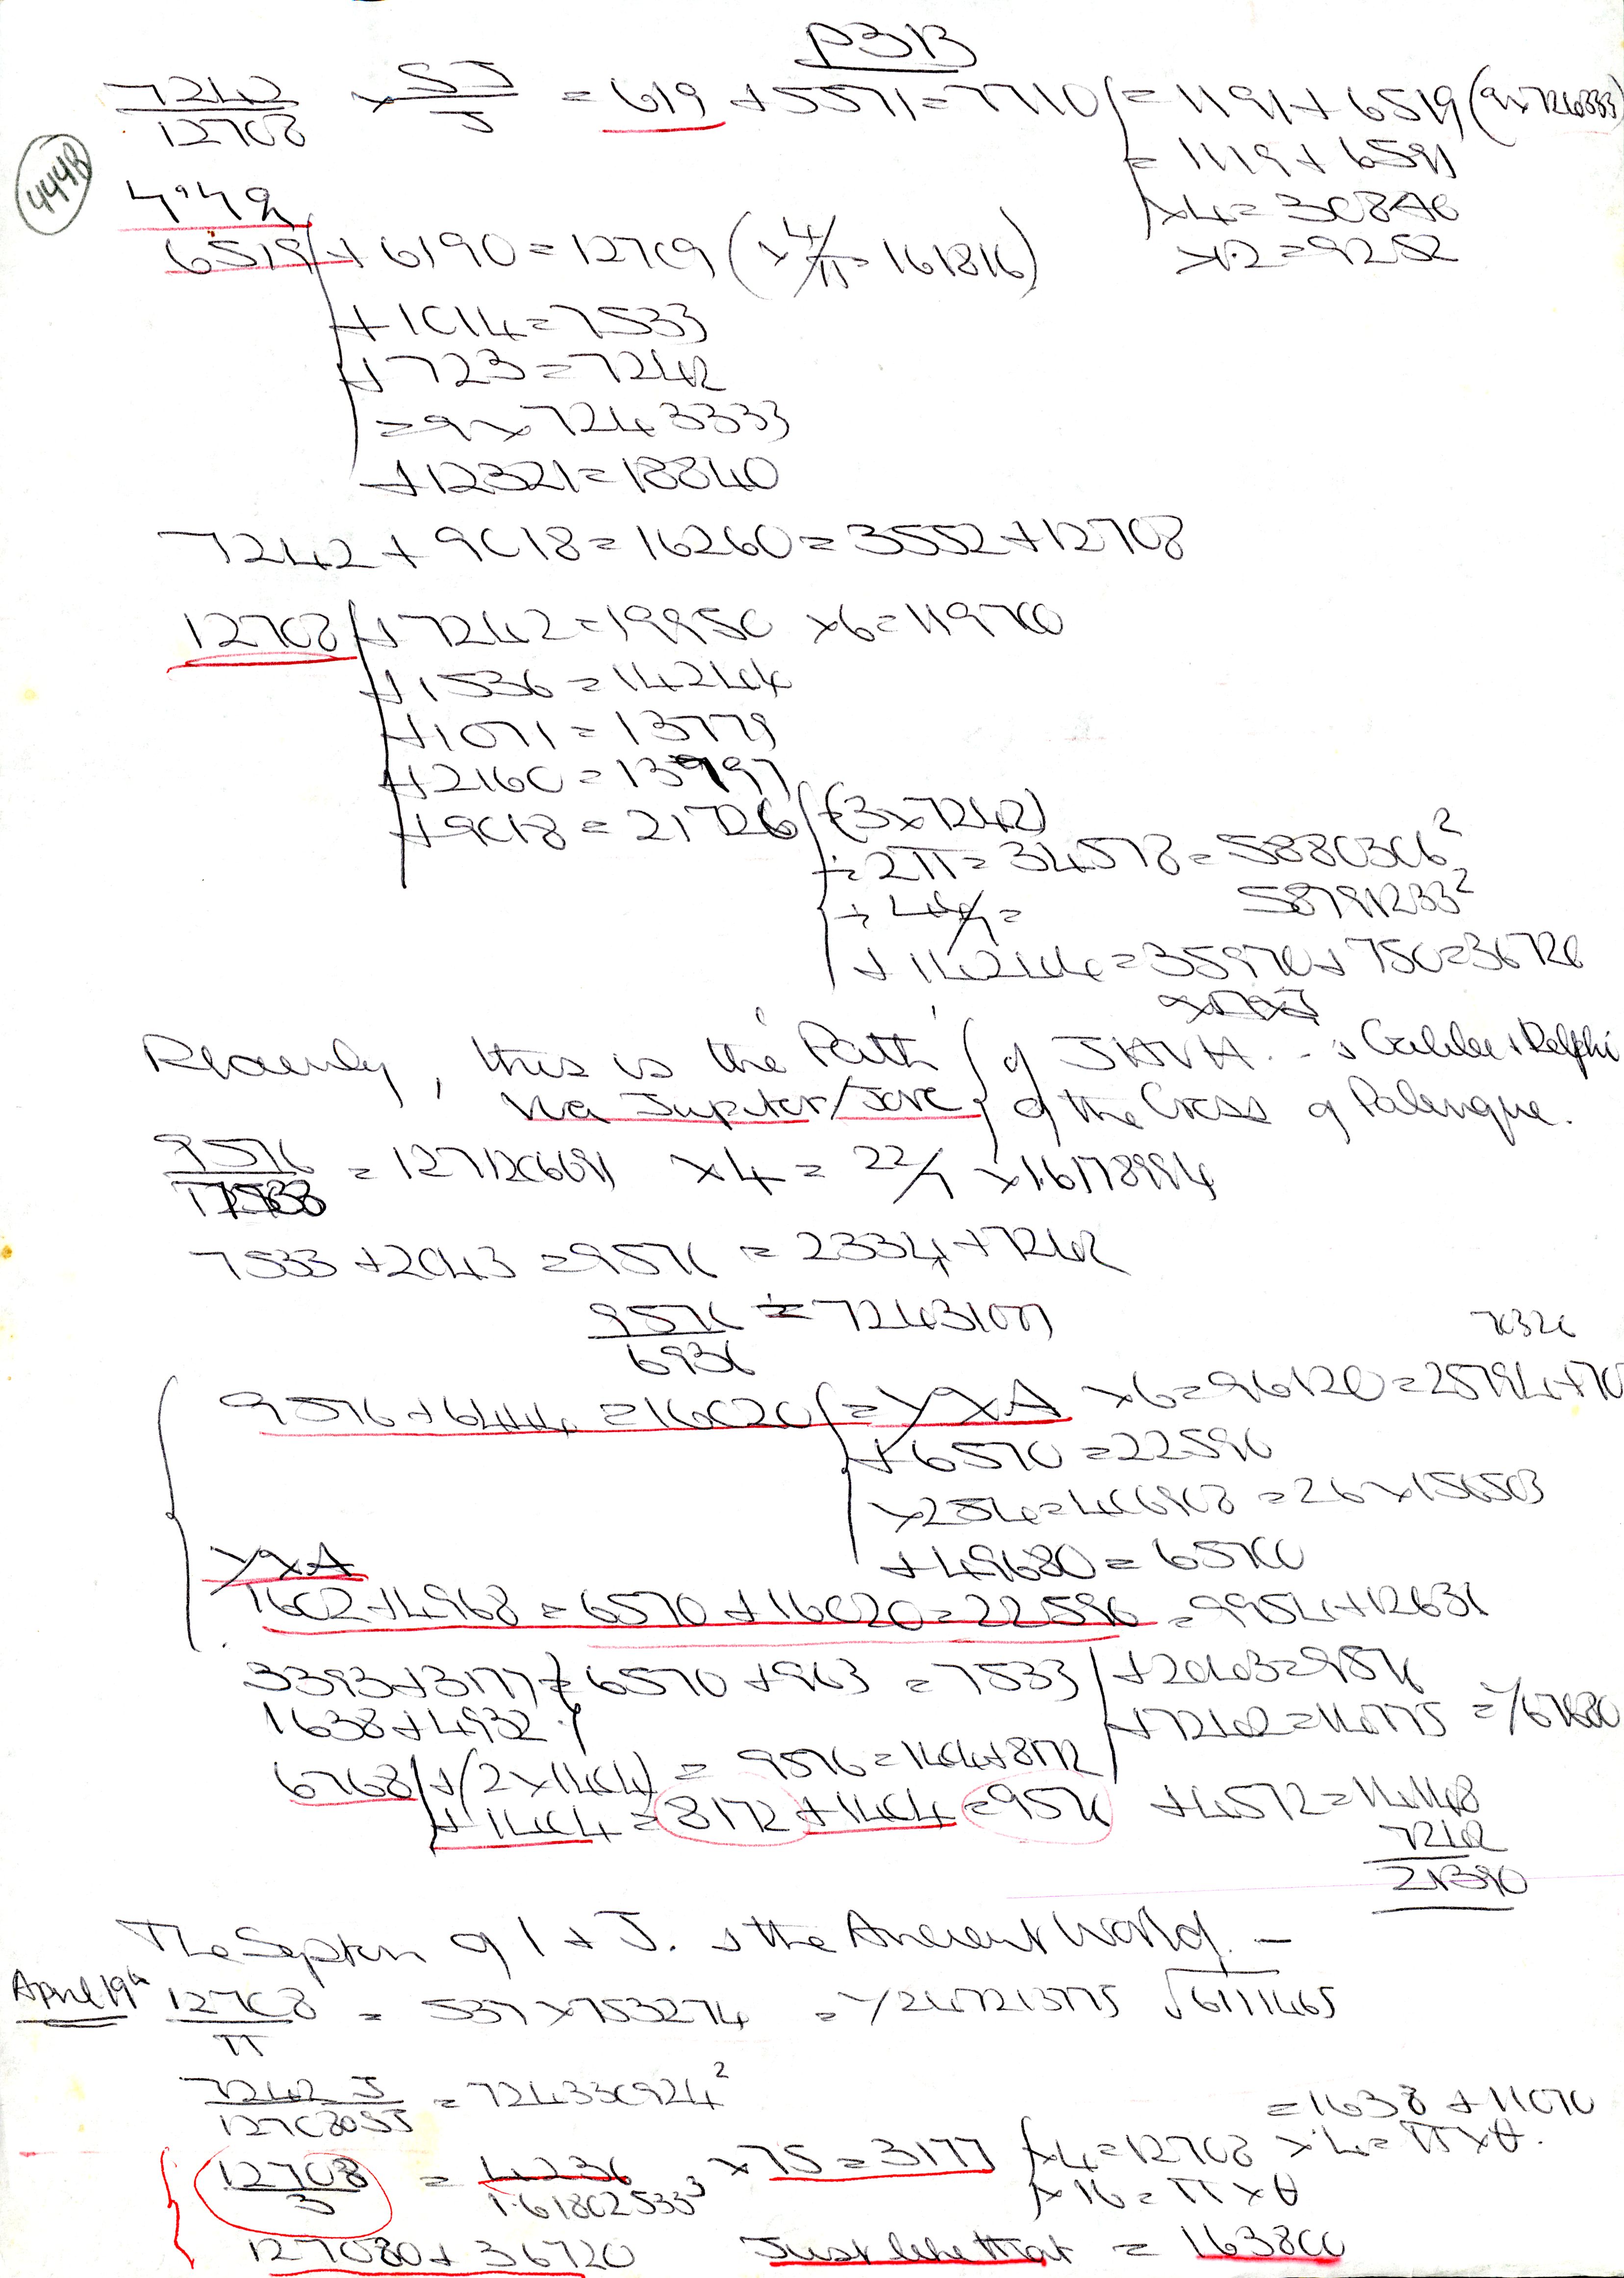 P313
7242/12708 × SJ/J = 619 + 5571 = 7710 = 1191 + 6519 (9×724333)
= 1119 + 6591
×4 = 30840
×1.2 = 9252
444B
4°49
6519 + 6190 = 12709 (×4/π = 161816)
+ 1014 = 7533
+ 723 = 7242
= 9 × 7243333
+ 12321 = 18840
7242 + 9018 = 16260 = 3552 + 12708
12708 + 7242 = 19950 ×6 = 119700
+ 1536 = 14244
+ 1071 = 13779
+ 2160 = 13997
+ 9018 = 21726 (3×7242)
÷ 2π = 34578 = 5880306²
58791233²
+ 14244 = 35970 + 750 = 36720
, this is the 'Path' of JHVH.. & Galilee & Delphi
via Jupiter/Jove of the Cross of Palenque.
9576/7533 = 127120669 ×4 = 22/7 × 1.6178994
7533 + 2043 = 9576 = 2334 + 7242
9576/6936 = 72431007
70326
9576 + 6444 = 16020 = YXA ×6 = 96120 = 25794 + 70
+ 6570 = 22590
×254 = 406908 = 26 × 156503
+ 49680 = 65700
YXA
1602 + 4968 = 6570 + 16020 = 22590 = 9954 + 12636
3393 + 3177 = 6570 + 963 = 7533 + 2043 = 9576
1638 + 4932 + 7242 = 14775 = 1/67680
6768 + (2×1404) = 9576 = 1404 + 8172
+ 1404 = 8172 + 1404 = 9576 + 4572 = 14148
7242
21390
The System of I + J. & the Ancient World. —
April 19th 12708/π = 537 × 753274 = 1/247213775 √6111465
7242 J/12708 SJ = 724330924²
= 1638 + 11070
12708/3 = 4236/1.61802533³ ×75 = 3177 ×4 = 12708 ×4 = π×θ.
×16 = π×θ
127080 + 36720 Just like that = 163800